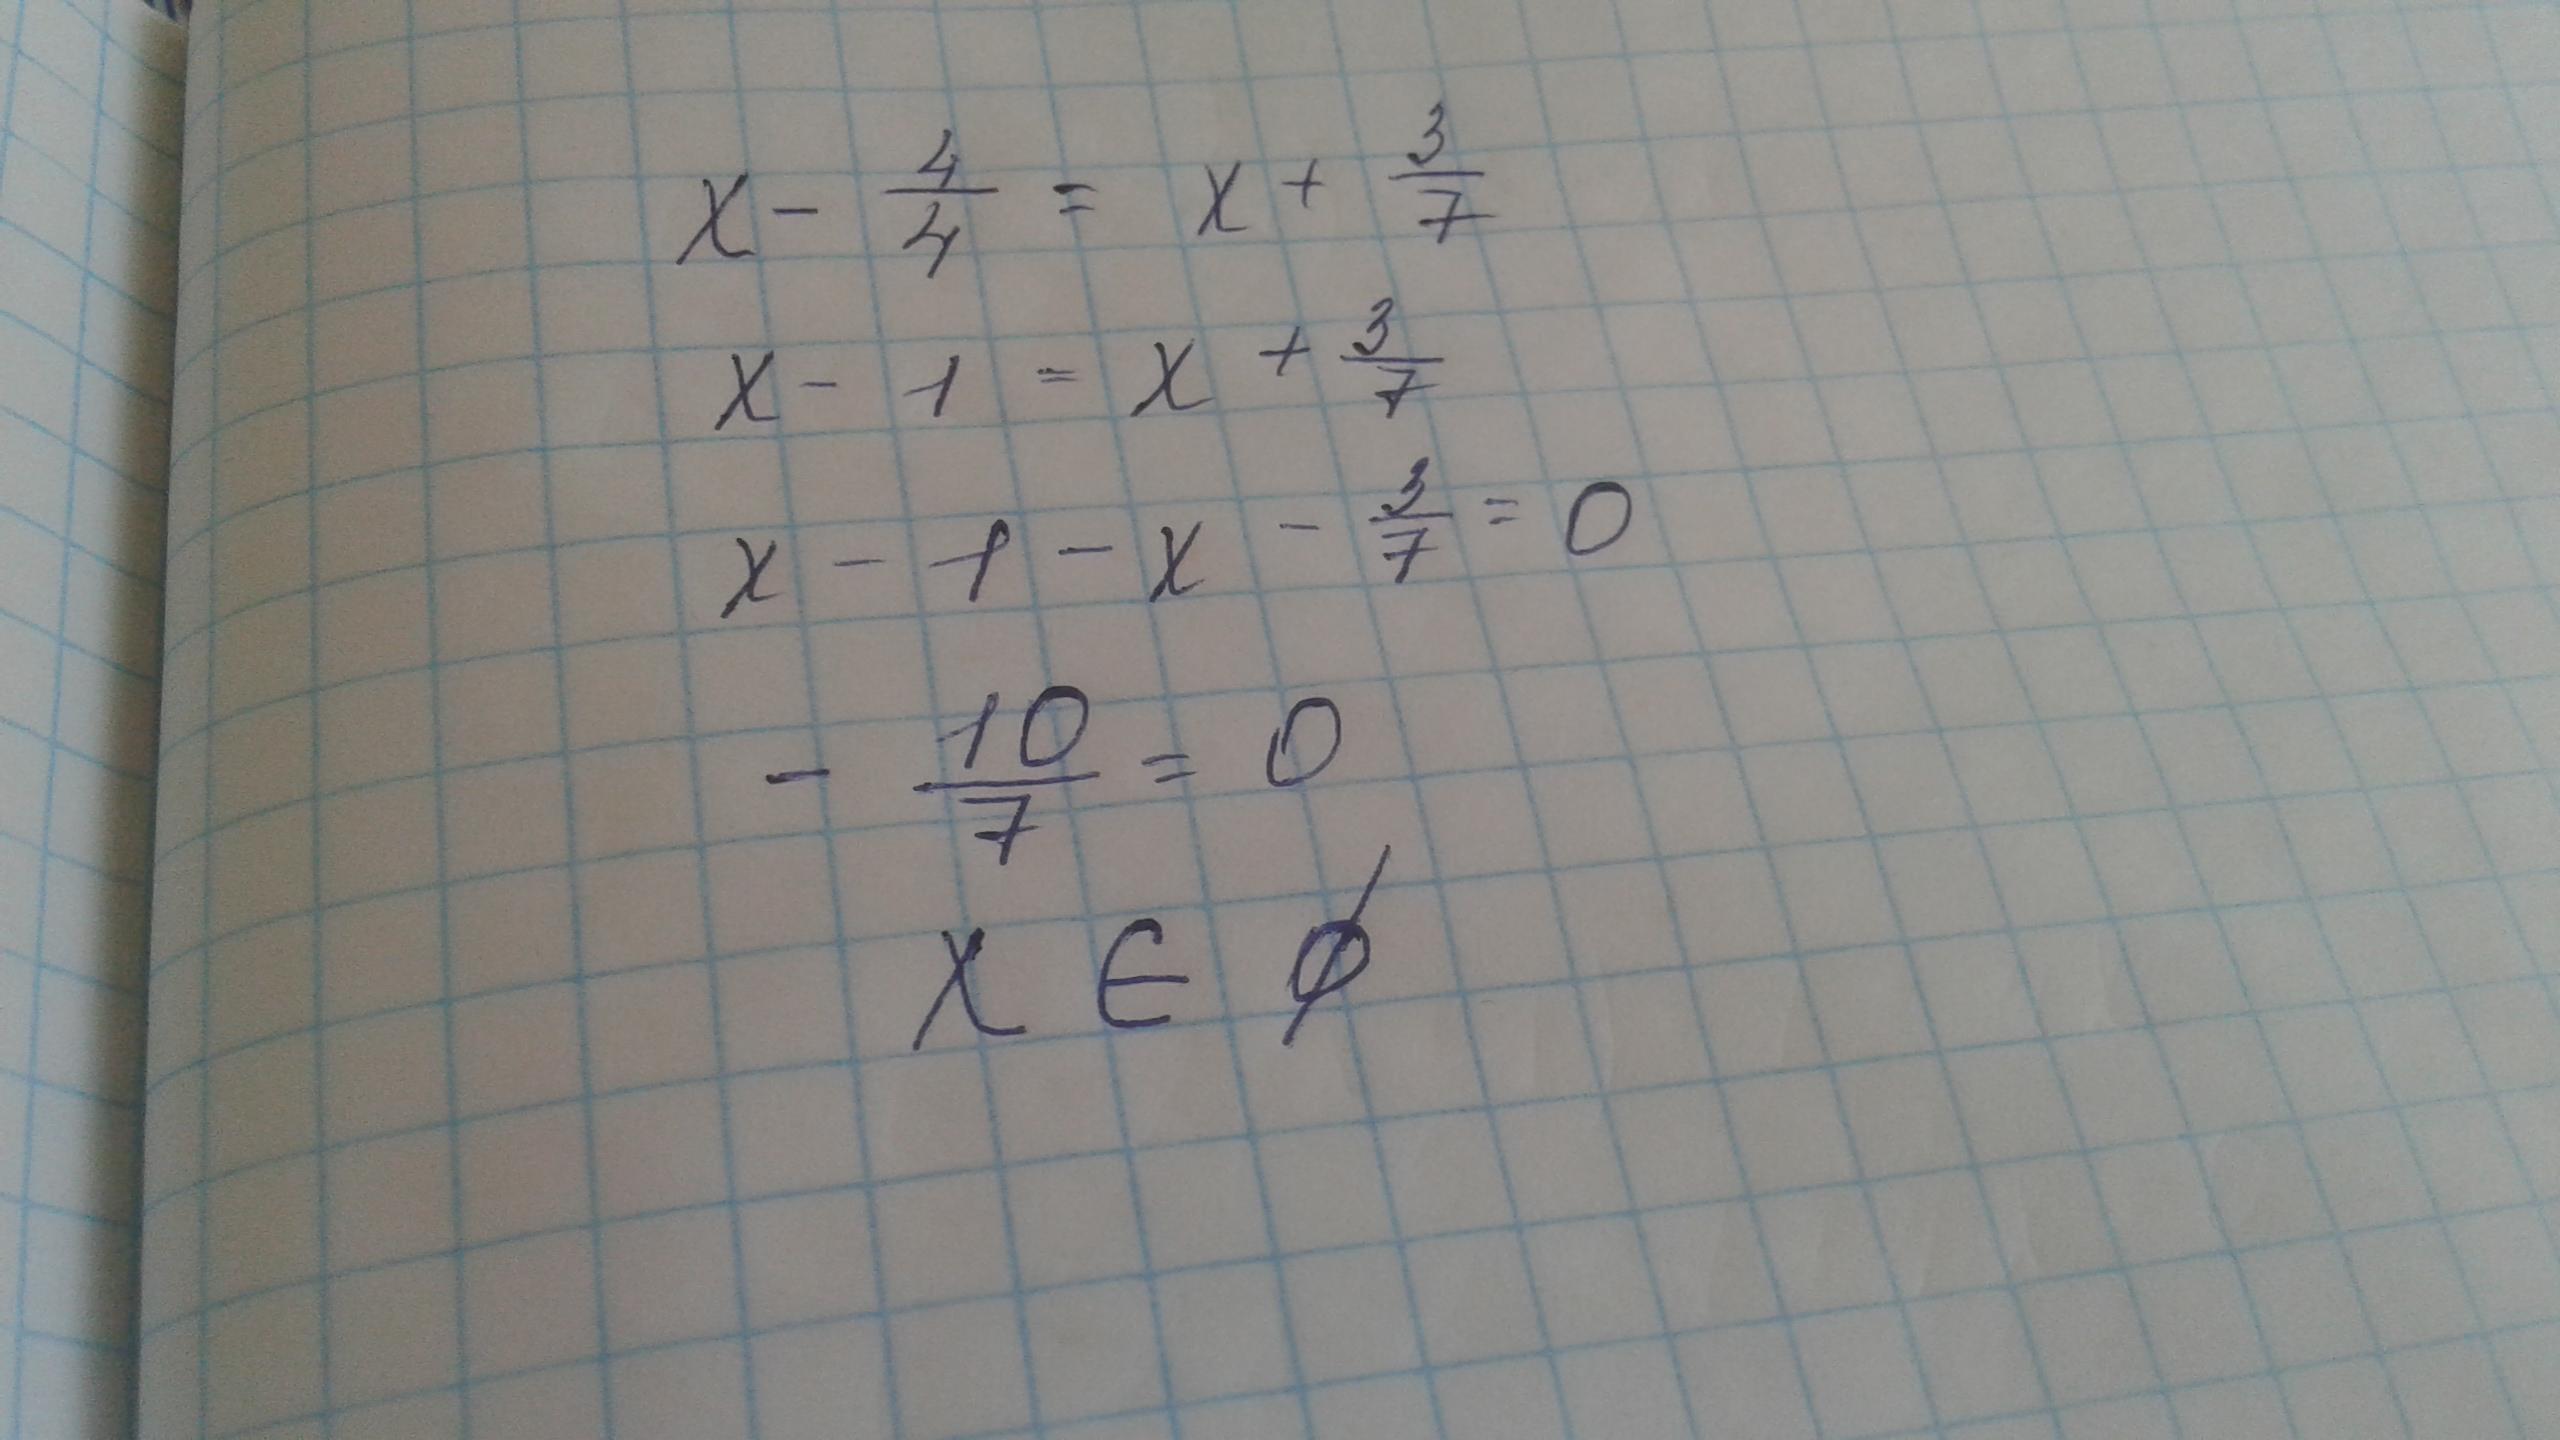 x - 4/4 = x + 3/7
x - 1 = x + 3/7
x - 1 - x - 3/7 = 0
- 10/7 = 0
x ∈ ∅